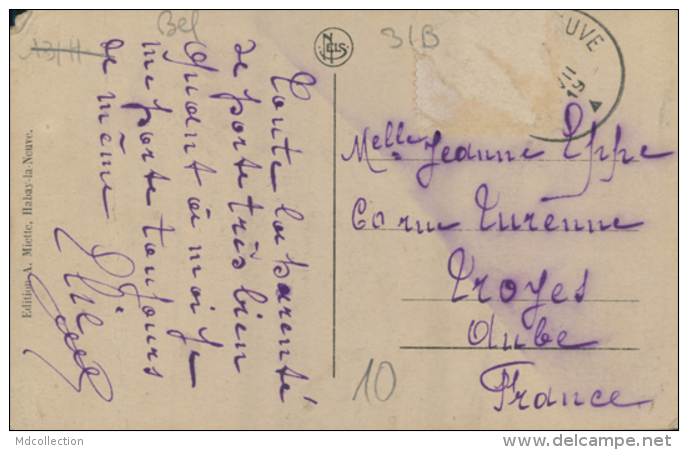 Bel
31B
13/11
NELS
UVE
11
19
Toute la parenté
se porte très bien
Quant à moi je
me porte toujours
de même
Melle Jeanne Eppe
60 rue Turenne
Troyes
Aube
France
10
Edition A. Miette, Habay-la-Neuve.
Mdcollection
www.delcampe.net